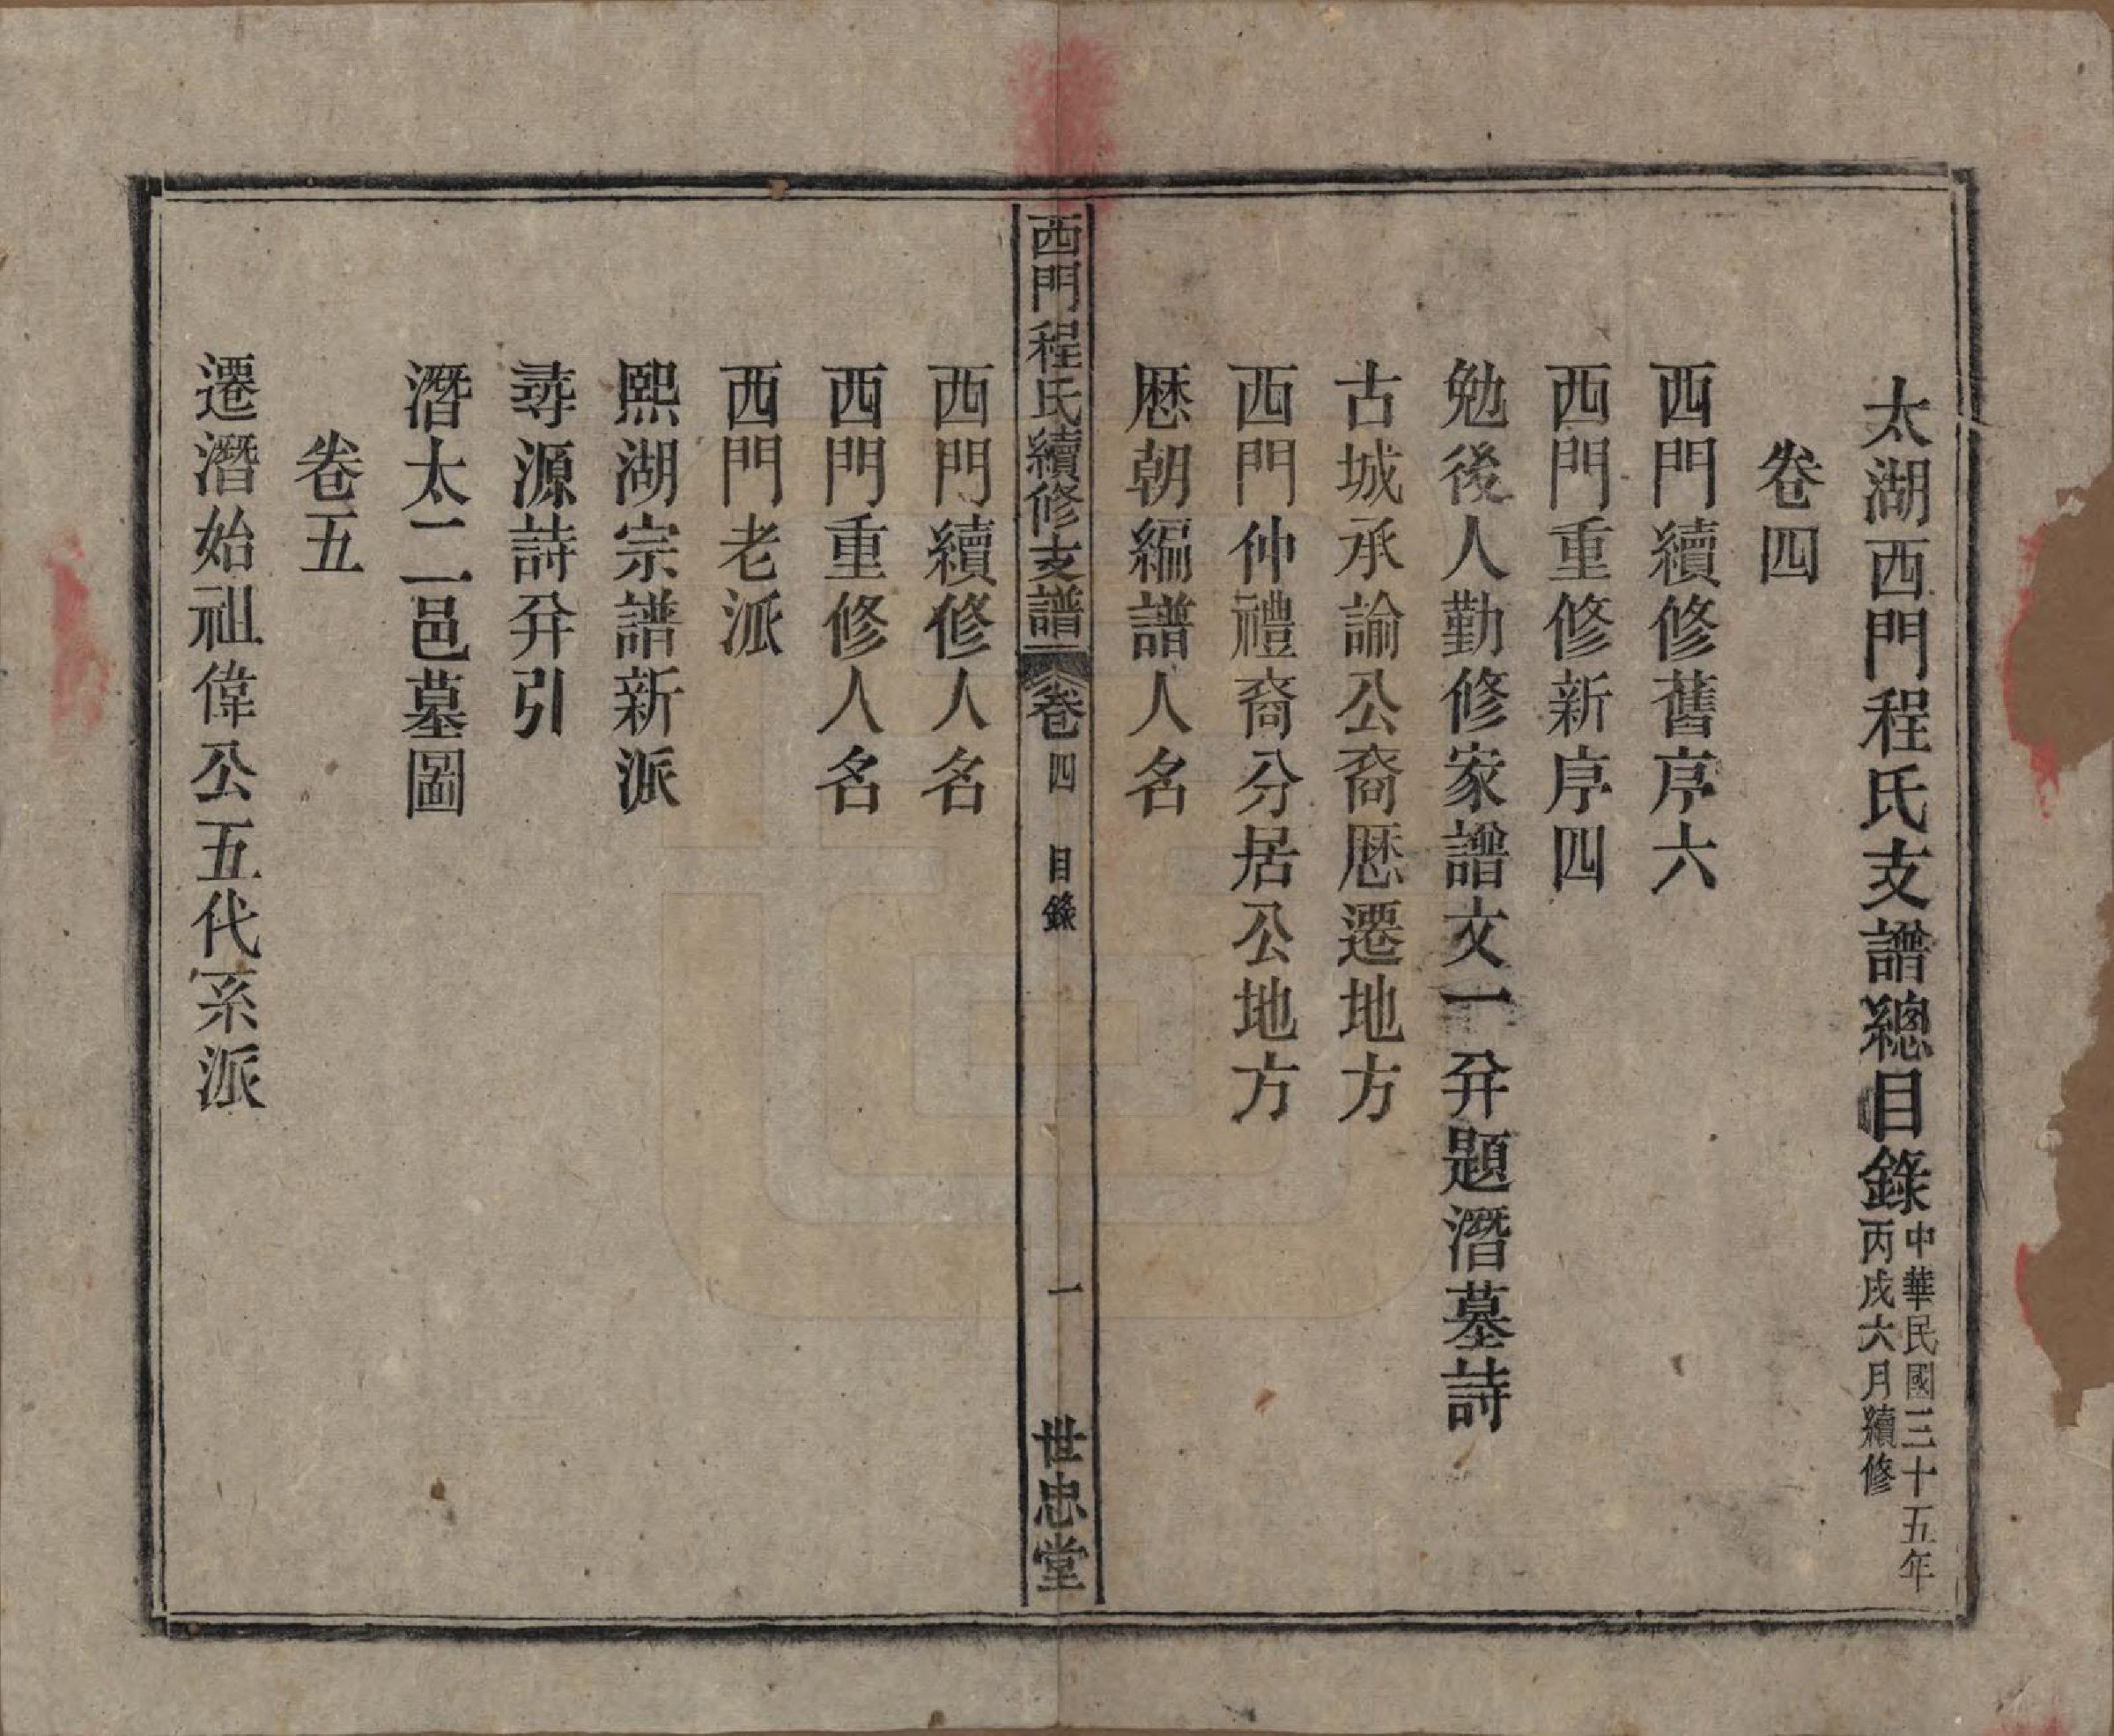 太湖西門程氏支譜總目錄
中華民國三十五年
丙戌六月續修
卷四
西門續修舊序六
西門重修新序四
勉後人勤修家譜文一弁題潛墓詩
古城承諭公裔歷遷地方
西門仲禮裔分居公地方
歷朝編譜人名
西門程氏續修支譜
卷四
目錄
一
世忠堂
西門續修人名
西門重修人名
西門老派
熙湖宗譜新派
尋源詩弁引
潛太二邑墓圖
卷五
遷潛始祖偉公五代系派